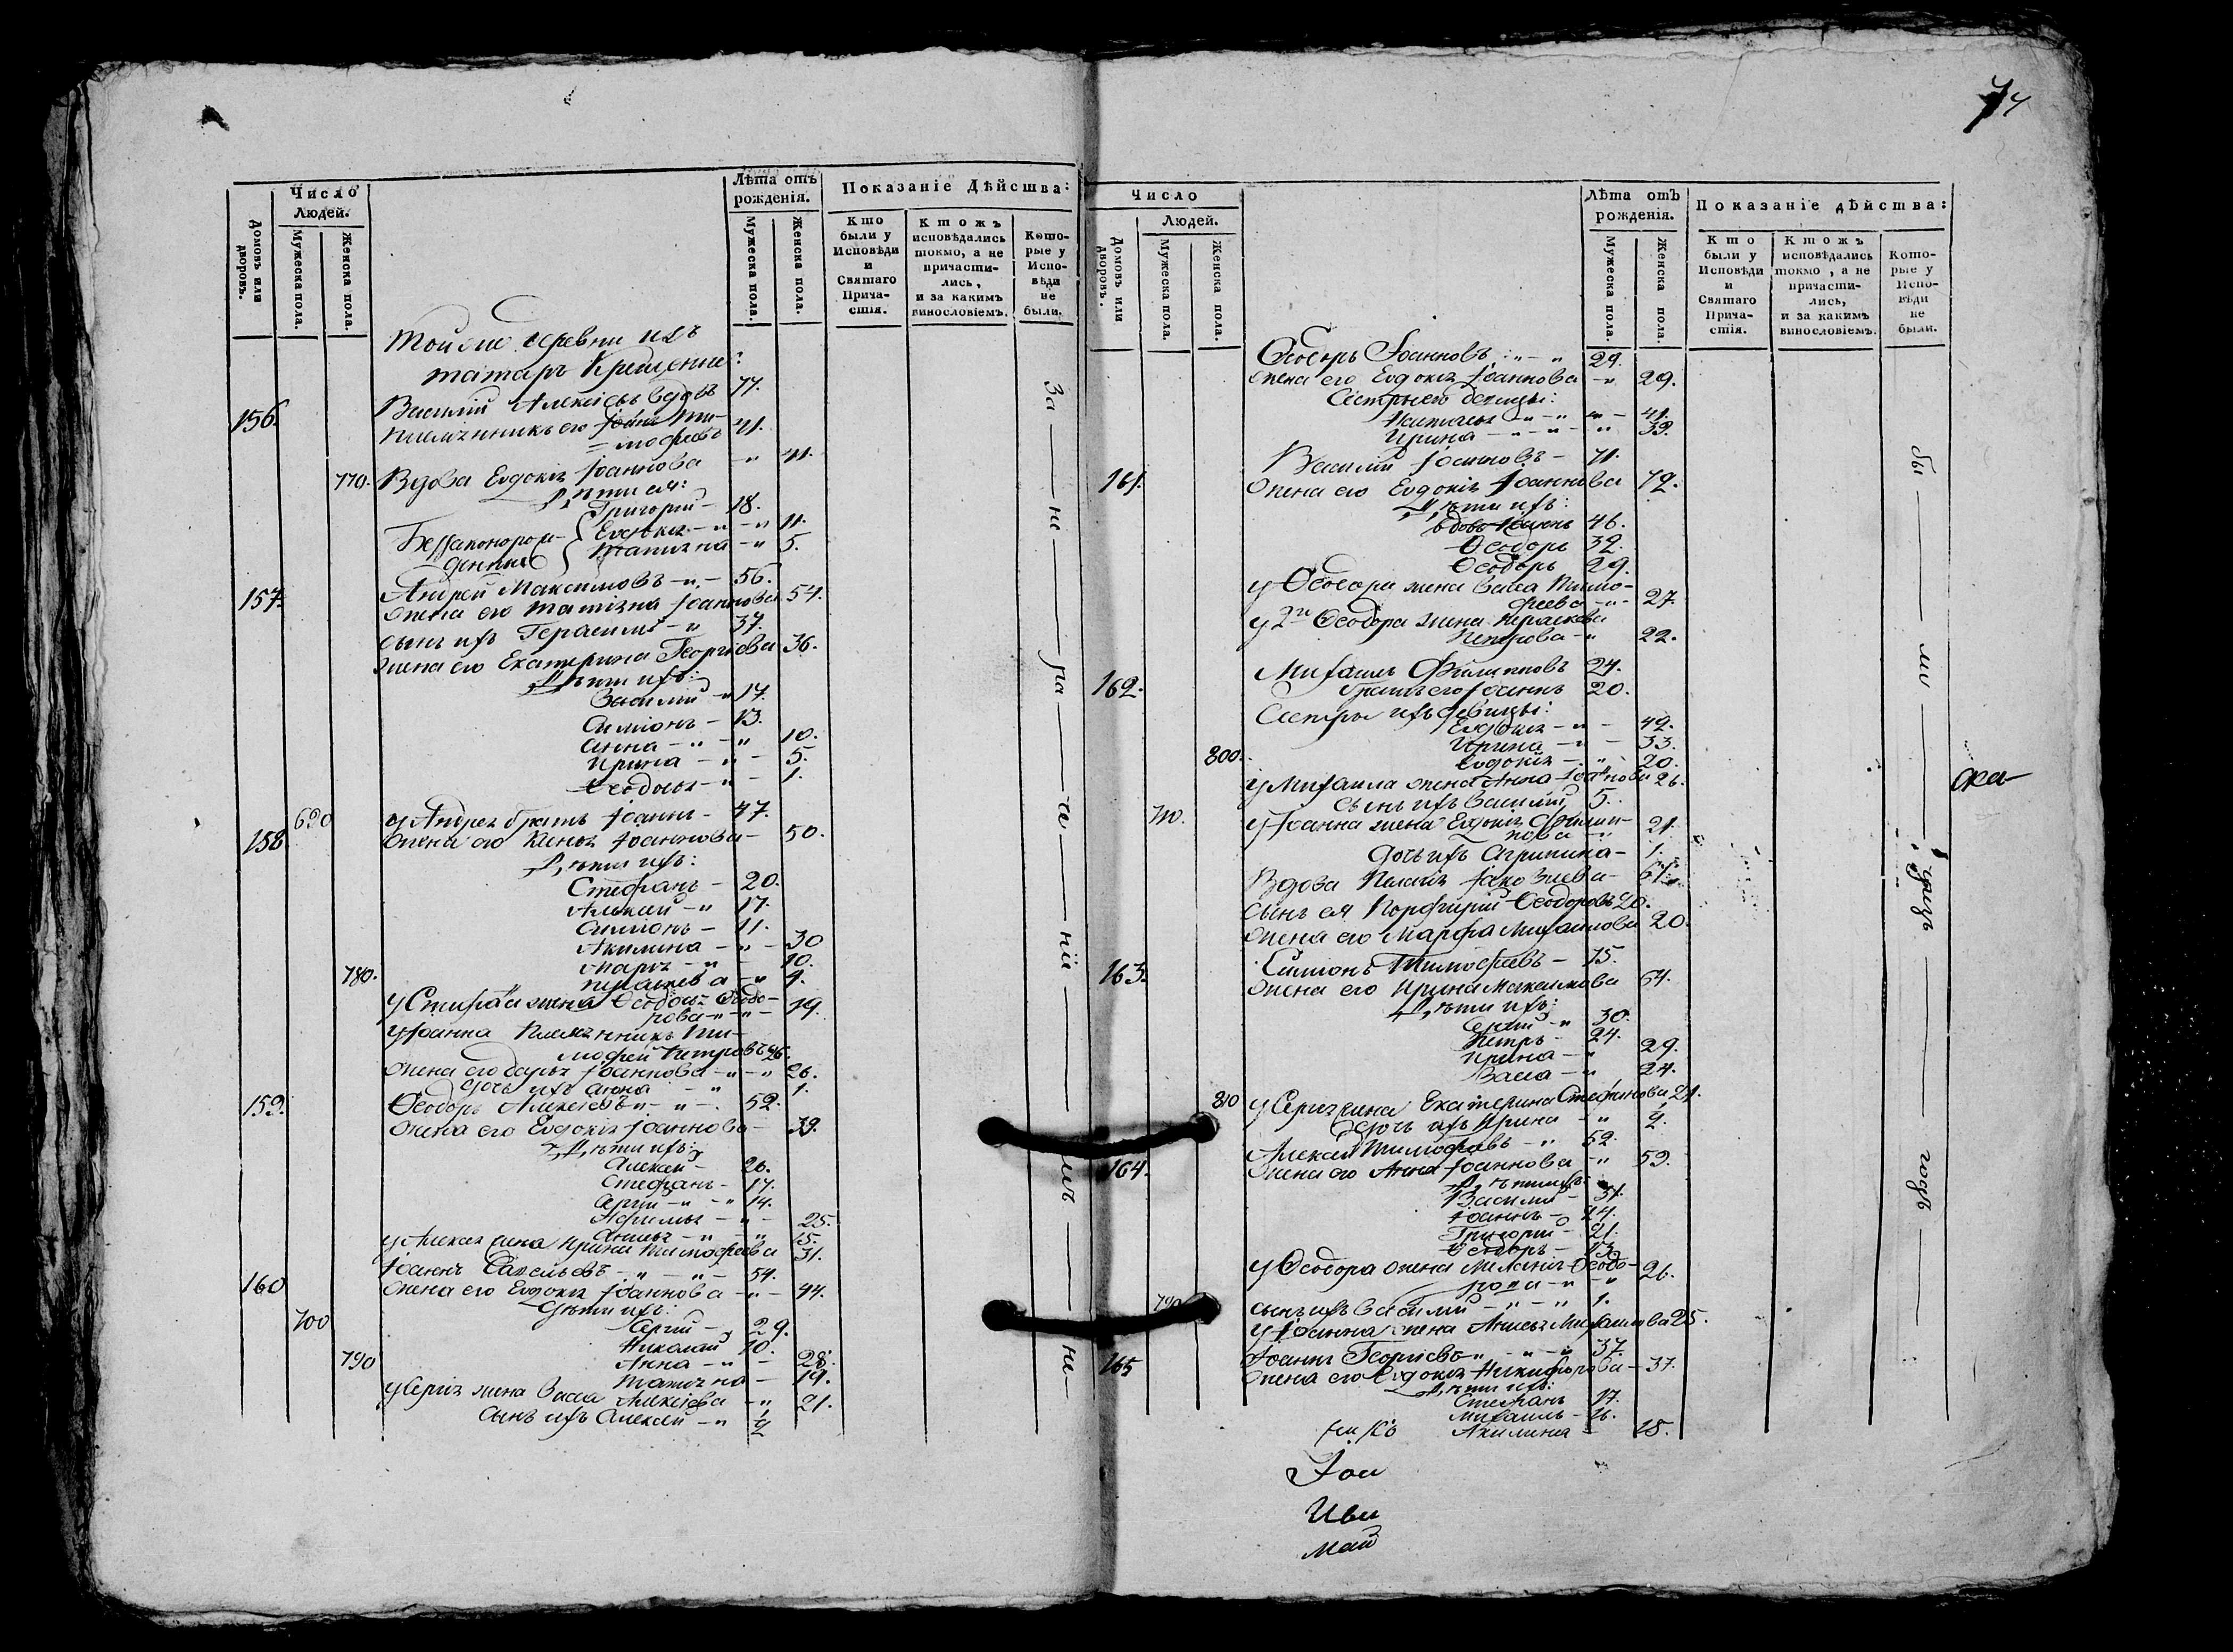 74
Число
Людей.
Лѣта отъ
рожденія.
Показаніе Дѣйства:
Домовъ или
дворовъ.
Мужеска пола.
Женска пола.
Мужеска пола.
Женска пола.
Кто
были у
Исповѣди
и
Святаго
Прича-
стія.
Ктожъ
исповѣдались
токмо, а не
причасти-
лись,
и за какимъ
винословіемъ.
Кото-
рые у
Испо-
вѣди
не
были.
Тойже деревни изъ
татаръ Крещенные:
156. Василий Алексіевъ вдовъ 77.
племянникъ его Іоаннъ Ти-
=мофеевъ 41.
770. Вдова Евдокія Іоаннова - " 41.
Дѣти ея:
Григорій - 18.
Беззаконорож-
денные
Евдокія - " - " 11.
Татіяна - " 5.
157. Андрей Максимовъ - " - 56.
жена его Татіяна Іоаннова 54.
сынъ ихъ Герасимъ - " 37.
жена его Екатерина Георгіева 36.
Дѣти ихъ:
Василій - " 17.
Симіонъ - 13.
Анна - " - " 10.
Ирина - " - 5.
Ѳеодосія - " - 1.
690 у Андрея братъ Іоаннъ - 47.
158. жена его Ксенія Іоаннова - 50.
Дѣти ихъ:
Стефанъ - 20.
Алексій - " 17.
Симіонъ - 11.
Акилина - " - 30
780. Марія - " - 10.
у Стефана жена Ѳеодосія Ѳеодо-
рова - " - " - 19.
у Іоанна Племянникъ Ти-
мофей Петровъ 26.
жена его Дарья Іоаннова - " - " 26.
дочь ихъ Анна - " 1.
159. Ѳеодоръ Алексіевъ - " - " - 52.
жена его Евдокія Іоаннова - 39.
Дѣти ихъ:
Алексій - 26.
Стефанъ - 17.
Сергій - " - " 14.
- " - 25.
Анисья - " - " 15.
у Алексія жена Ирина Тимофеева 31.
160 Іоаннъ Савельевъ - " - " - 54.
жена его Евдокія Іоаннова - " - 44.
Дѣти ихъ:
700 Сергій - 29.
Николай 10.
790 Анна - " - 28.
Татіяна - 19.
у Сергія жена Васса Алексіева - " 21.
сынъ ихъ Алексій - "
За — не — ра — — ні — — не —
Число
Людей.
Лѣта отъ
рожденія.
Показаніе дѣйства:
Домовъ или
дворовъ.
Мужеска пола.
Женска пола.
Мужеска пола.
Женска пола.
Кто
были у
Исповѣди
и
Святаго
Прича-
стія.
Ктожъ
исповѣдались
токмо, а не
причасти-
лись,
и за какимъ
винословіемъ.
Кото-
рые у
Испо-
вѣди
не
были.
Ѳеодоръ Іоанновъ : " - " 29.
жена его Евдокія Іоаннова - " 29.
Сестры его девицы:
Наталья - " - " " - 41.
Ирина - " - " - " 39.
Василій Іоанновъ - 71.
161. жена его Евдокія Іоаннова 72.
Дѣти ихъ:
46.
Ѳеодоръ 32.
Ѳеодоръ 29.
у Ѳеодора жена Васса Тимо-
феева - " - 27.
у 2го Ѳеодора жена Параскева
Петрова - " 22.
Михаилъ Филипповъ 24.
162. братъ его Іоаннъ 20.
Сестры ихъ девицы:
Евдокія - " - 42.
Ирина - " - 33.
800. Евдокія - " - 20.
у Михаила жена Анна Іоаннова 26.
710. сынъ ихъ Василій 5.
у Іоанна жена Евдокія Филип-
пова - " 21.
дочь ихъ Агрипина - 1.
Вдова Пелагія Іаковлева - 61.
сынъ ея Порфирий Ѳеодоровъ 20.
жена его Марфа Михаилова 20.
163. Симіонъ Тимофеевъ - 75.
жена его Ирина Максимова 64.
Дѣти ихъ:
Сергій - " 30.
Петръ - 24.
Ирина - " 29.
Васса - " 24.
810 у Сергія жена Екатерина Стефанова 21.
дочь ихъ Ирина - "
Алексій Тимофеевъ - " 52.
164. жена его Анна Іоаннова - " 59.
Дѣти ихъ:
Василій - 31.
Іоаннъ - 24.
Григорій - 21.
Ѳеодоръ - 13
у Ѳеодора жена Меланія Ѳеодо-
рова - " - " 26.
сынъ ихъ Василий - " - " 1.
у Іоанна жена Анисья Михаилова 25.
165 Іоаннъ Георгіевъ - " - " - " 37.
жена его Евдокія Никифорова - 37.
Дѣти ихъ:
Стефанъ 17.
Михаилъ - 16.
Акилина - 18.
бы — ли — — годъ —
ска-
Іои
Иви
май